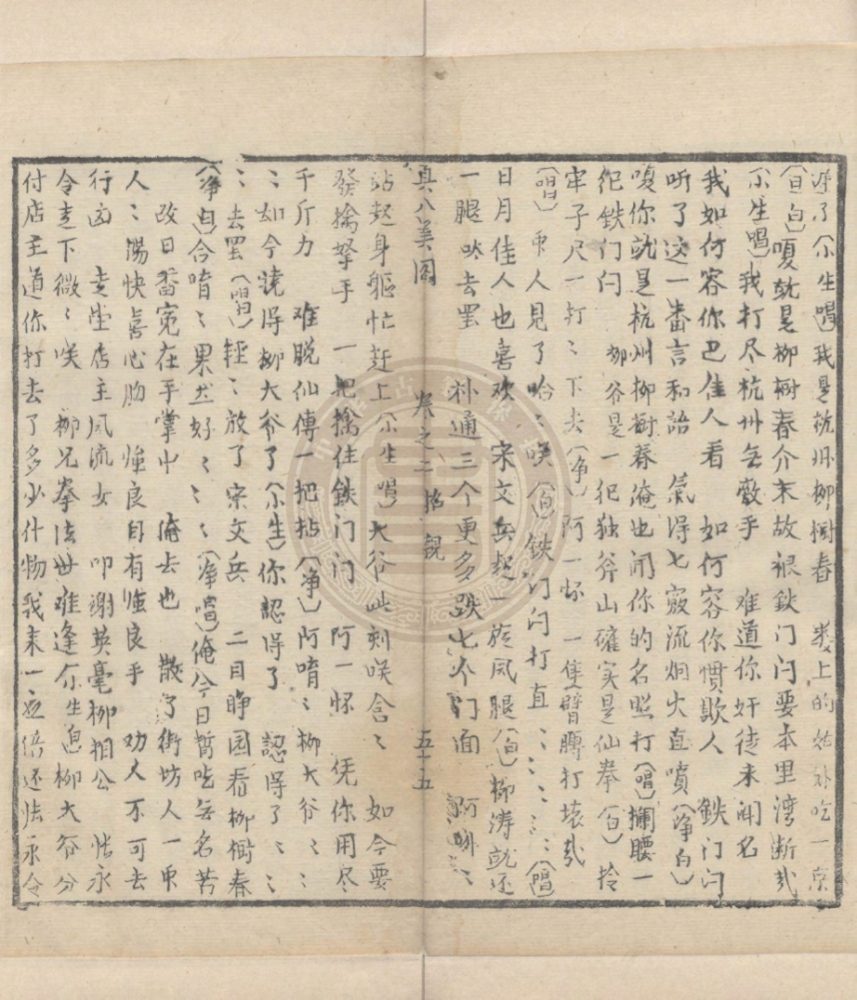 了（小生唱）我是杭州柳樹春　楼上的姑　吃一京
（白白）嗄就是柳樹春介末故裉鉄门闩要本里湾断哉
（小生唱）我打尽杭州無敵手　难道你奸徒未闻名
我如何容你巴佳人看　如何容你惯欺人　鉄门闩
听了这一番言和語　氣得七竅流烟火直噴（净白）
嗄你就是杭州柳樹春俺也闻你的名照打（唱）攔腰一
鉄门闩　柳爷是一把独斧山確实是仙拳（白）拎
牢子尺一打〻下去（净）阿一怀　一隻臂膊打壊哉
（唱）衆人見了哈〻唉（白）鉄门闩打直〻〻〻〻〻（唱）
日月佳人也喜欢　宋文兵起一旋风腿（白）柳涛就还
一腿　去罢　朴通三个更多跌七个门面　阿唷〻
真八美图　卷之二　招親　五十五
站起身軀忙赶上（小生唱）大爷此刻唉含〻　如今要
發擒拏手　一把擒住鉄门闩　阿一怀　凭你用尽
千斤力　难脱仙傳一把拈（净）阿唷〻柳大爷〻〻
〻如今曉得柳大爷了（小生）你認得了　認得了〻〻
〻去罢（唱）轻〻放了宋文兵　二目睁园看柳樹春
（净白）合唷〻果然好〻〻〻（净唱）俺今日暫吃無名苦
改日番冤在手掌中　俺去也　散了街坊人一衆
人〻湯快喜心肠　強良自有強良手　劝人不可去
行凶　走出店主风流女　叩謝英毫柳相公　怯永
令走下微〻唉　柳兄拳法世难逢（小生）
柳大爷分
付店主道你打去了多少什物我末一並倍还怯永令